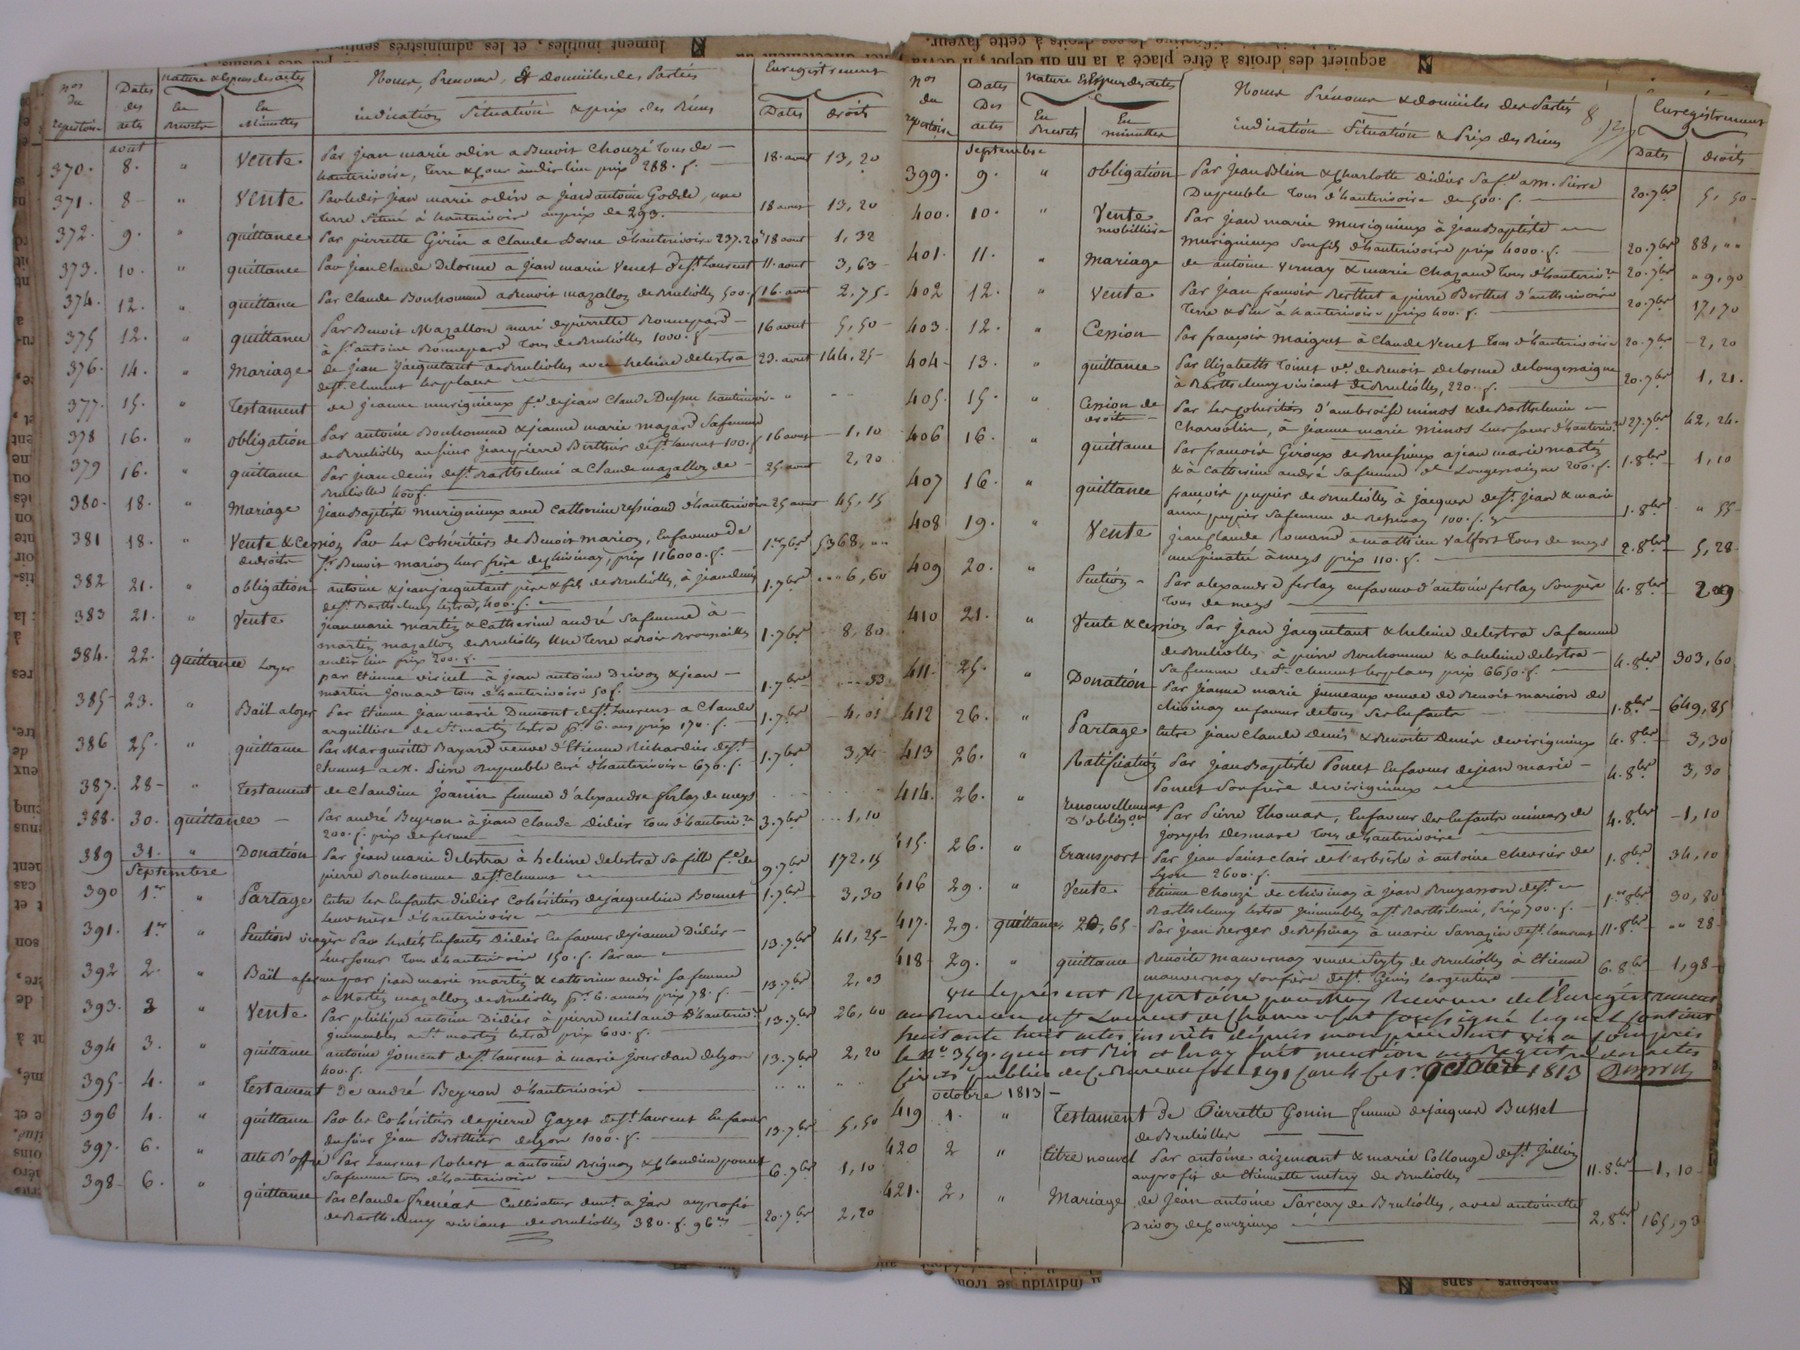 Nos du repertoire
Dates des actes
Nature & Espece des actes
En Brevets
En Minuttes
Noms, Prenoms, Et domiciles des Parties
indication Situation & prix des Biens
Enregistrement
Dates
droits
aout
370. 8. " Vente. Par jean marie odin a Benoit Chouzé tous de
hauterivoire, terre & cour audit lieu prix 288. f. 18. aout 13, 20
371. 8 " Vente Par ledit jean marie odin a jean antoine Godde, une
terre Située à hauterivoire au prix de 293. 18 aout 13, 20
372. 9. " quittance Par pierrette Girin a Claude Besne d'hauterivoire 237. 20 18 aout 1, 32
373. 10. " quittance Par jean Claude Delorme a jean marie Venet de St. Laurent 11. aout 3, 63
374. 12. " quittance Par Claude Bonhomme a Benoit mazallon de Brulliolles 500. f 16. aout 2, 75
375 12. " quittance Par Benoit Mazallon mari de pierrette Ronnepard
à St. antoine Ronnepard tous de Brulliolles 1000. f 16 aout 5, 50
376. 14. " Mariage de jean jacquetant de Brulliolles avec heleine delestra
de St. Clement les places 23. aout 144, 25
377. 15. " Testament de jeanne murigneux fe. de jean Claude hauterivoire
378 16. " obligation Par antoine Bonhomme & jeanne marie mazard Sa femme
de Brulliolles au Sieur jean pierre Berthier de St. Laurent 100. f 16 aout 1, 10
379 16. " quittance Par jean denis de St. Barthelemi a Claude mazallon de
Brulliolles 400 f. 25 aout 2, 20
380. 18. " Mariage jean Baptiste murigneux avec Catherine d'hauterivoire 25 aout 45, 15
381 18. " Vente & Cession de droits Par les Cohéritiers de Benoit marion, En faveur de
Sr. Benoit marion leur frère de Chivinay prix 116000. f. 1er. 7bre 5368, ""
382 21. " obligation antoine & jean jacquetant père & fils de Brulliolles, à jean denis
de St. Barthelemy lestra, 400. f. 1. 7bre 6, 60
383 21. " Vente jean marie martin & Catherine andré Sa femme à
martin mazallon de Brulliolles Une terre & bois Broussailles
audit lieu prix 200. f. 1. 7bre 8, 80
384. 22. quittance loyer par Etienne à jean antoine Drivon & jean
martin jomard tous d'hauterivoire 50 f. 1. 7bre 55
385 23. " Bail a loyer Par Etienne jean marie Dumont de St. Laurent a Claude
arquilliere de St. martin lestra pr. 6. ans prix 170. f. 1. 7bre 4, 01
386 25. " quittance Par Margueritte Bazard veuve d'Etienne Richardier de St.
Clement a M. Pierre Dupeuble curé d'hauterivoire 670. f. 1. 7bre 3, 74
387. 28 " Testament de Claudine joanin femme d'alexandre ferlay de meys
388. 30. quittance Par andré Beyron à jean Claude Didier tous d'hauterivre
200. f. prix de ferme 3. 7bre 1, 10
389 31. " Donation Par jean marie delestra à heleine delestra Sa fille fe. de
pierre Bonhomme de St. Clement 9. 7bre 172, 15
Septembre
390 1er " Partage Entre les Enfants didier Cohéritiers de jacqueline Bonnet
leur mère d'hauterivoire 1. 7bre 3, 30
391. 1er " Pention viagère Par lesdits Enfants Didier En faveur de jeanne Didier
leur Soeur tous d'hauterivoire 150. f. Par an 13. 7bre 41, 25
392 2. " Bail a ferme par jean marie martin & catherine andré Sa femme
a Martin mazallon de Brulliolles pr. 6. années prix 78. f. 13. 7bre 2, 03
393. 3 " Vente Par philipe antoine Didier à pierre d'hauterivre
immeubles a St. martin lestra prix 600. f. 13. 7bre 26, 40
394 3. " quittance antoine joment de St. laurent à marie jourdan de lyon
400. f. 13. 7bre 2, 20
395. 4. " Testament de andré Beyron d'hauterivoire
396 4. " quittance Par les Cohéritiers de pierre Gayet de St. laurent En faveur
du Sieur jean Berthier de lyon 1000. f. 13. 7bre 5, 50
397. 6. " acte d'offre Par Laurent Robert a antoine Brignon & Claudine poncet
Sa femme tous d'hauterivoire 6. 7bre 1, 10
398 6. " quittance Par Claude Cultivateur demt. a jas au profit
de Barthelemy viviant de Brulliolles 380. f. 96 cs 20. 7bre 2, 20
Nos du repertoire
Dates Des actes
Nature & Espece des actes
En Brevets
En minuttes
Noms Prénoms & domiciles des Parties
indication Situation & Prix des Biens
8
Enregistrement
Dates
droits
Septembre
399. 9. " obligation Par jean Blein & Charlotte didier Sa fe. a m. Pierre
Dupeuble tous d'hauterivoire de 500. f. 20. 7bre 5, 50
400. 10. " Vente mobilliere Par jean marie murigneux à jean Baptiste
murigneux Son fils d'hauterivoire prix 4000. f. 20. 7bre 88, ""
401. 11. " Mariage de antoine vernay & marie Chazaud tous d'hauterivre 20. 7bre " 9, 90
402 12. " Vente Par jean francois Berthet a pierre Berthet d'hauterivoire
Terre & Pré à hauterivoire prix 400. f. 20. 7bre 17, 70
403. 12. " Cession Par francois Maigret à Claude Venet tous d'hauterivoire 20. 7bre 2, 20
404 13. " quittance Par Elizabeth Toinet ve. de Benoit Delorme de longessaigne
à Barthelemy viviant de Brulliolles, 220. f. 20. 7bre 1, 21.
405. 15. " Cession de droits Par les Cohéritiers d'ambroise minos & de Barthelemie
Charvolin, à jeanne marie Minos leur Soeur d'hauterivre 27. 7bre 42, 24.
406 16. " quittance Par francois Giroux de Brussieux a jean marie martin
& à Catherine andré Sa femme de Longessaigne 200. f. 1. 8bre 1, 10
407 16. " quittance francois pupier de Brulliolles à jacques de St. jean & marie
anne pupier Sa femme de 100. f. 1. 8bre " 55
408 19. " Vente jean Claude Romand a mathieu Valfort tous de meys
une pinatée à meys prix 110. f. 2. 8bre 5, 28
409 20. " Pention Par alexandre ferlay en faveur d'antoine ferlay Son père
tous de meys 4. 8bre 209
410 21. " Vente & cession Par jean jacquetant & heleine delestra Sa femme
de Brulliolles à pierre Bonhomme & a heleine delestra
Sa femme de St. clement les places prix 6650. f. 4. 8bre 303, 60
411 25. " Donation Par jeanne marie jumeaux veuve de Benoit marion de
chivinay en faveur de tous Ses Enfants 1. 8bre 649, 85
412 26. " Partage Entre jean Claude Denis & Benoite Denis de virigneux 4. 8bre 3, 30
413 26. " Ratification Par jean Baptiste Poncet En faveur de jean marie
Poncet Son frère de virigneux 4. 8bre 3, 30
414. 26. " renouvellement D'obligon Par Pierre Thomas, En faveur des Enfants mineurs de
joseph Desmare tous d'hauterivoire 4. 8bre 1, 10
415. 26. " Transport Par jean Saint clair de l'arbresle à antoine chevrier de
Lyon 2600. f. 1. 8bre 34, 10
416 29. " Vente Etienne chouzé de chivinay à jean Bruyasson de St.
Barthelemy lestra immeubles a St. Barthelemi, Prix 700. f. 1er 8bre 30, 80
417. 29. quittance, 20, 65 Par jean berger de à marie Sarrazin de St. laurent 11. 8bre "" 28
418 29. " quittance Benoite mauvernay veuve de Brulliolles à Etienne
mauvernay Son frère de St. Genis l'argentiere 6. 8bre 1, 98
Vu le présent Repertoire par Moy Receveur de l'Enregistrement
au Bureau de St Laurent de Chamousset Soussigné lequel contient
Soixante huit actes inscrits depuis mon précédent visa
le No. 359. mention au Registre des actes
civils publics de ce Bureau fol. 191 Case 4 Ce 1er octobre 1813
octobre 1813
419 1. " Testament de Pierrette Gonin femme de jacques Busset
de Brulliolles
420 2 " titre nouvel Par antoine aizemant & marie Collonge de St. jullien
au profit de Etiennette de Brulliolles 11. 8bre 1, 10
421. 2. " Mariage de jean antoine Sarcay de Brulliolles, avec antoinette
Drivon de Courzieux 2. 8bre 165, 93
acquiert des droits à être placé à la fin
cette faveur.
lument inutiles, et les administrés